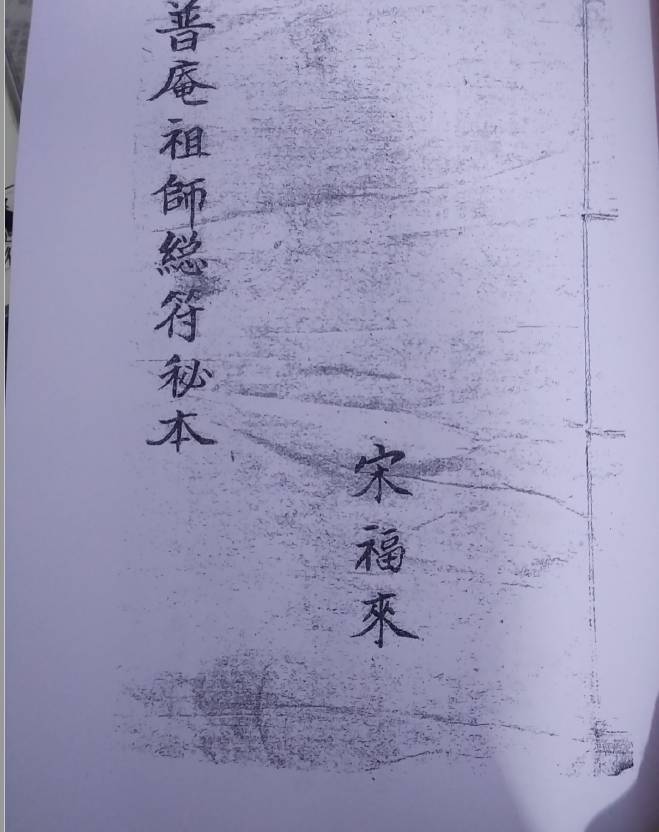 普庵祖師総符秘本
宋福來